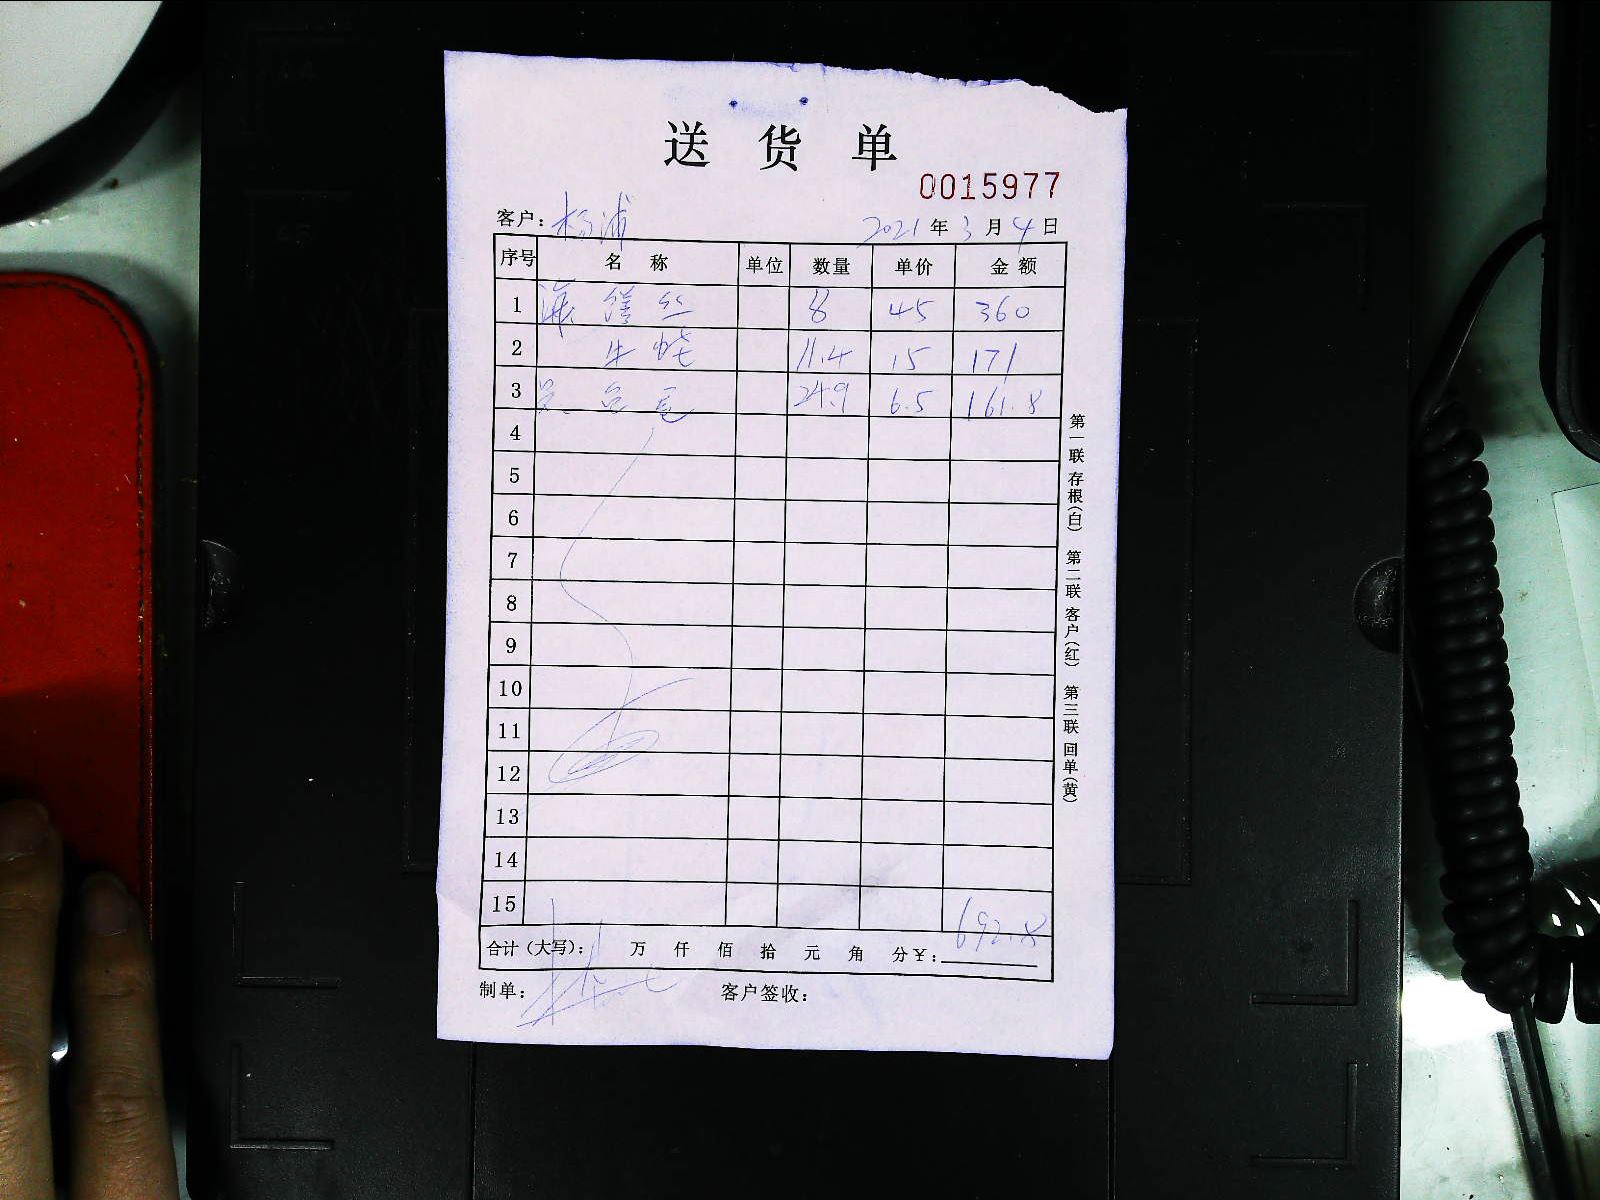 送货单
0015977
客户: 杨浦 2021年3月4日
序号 名称 单位 数量 单价 金额
1 丝 8 45 360
2 牛 11.4 15 171
3 24.9 6.5 161.8
4
5
6
7
8
9
10
11
12
13
14
15
合计(大写): 万 仟 佰 拾 元 角 分 ¥: 692.8
制单: 客户签收:
第一联 存根(白) 第二联 客户(红) 第三联 回单(黄)